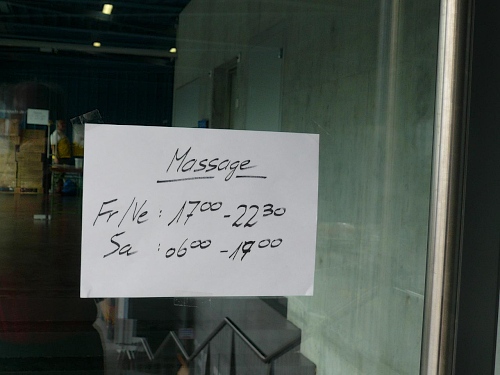 Massage
Fr/Ve : 17⁰⁰ - 22³⁰
Sa : 06⁰⁰ - 19⁰⁰